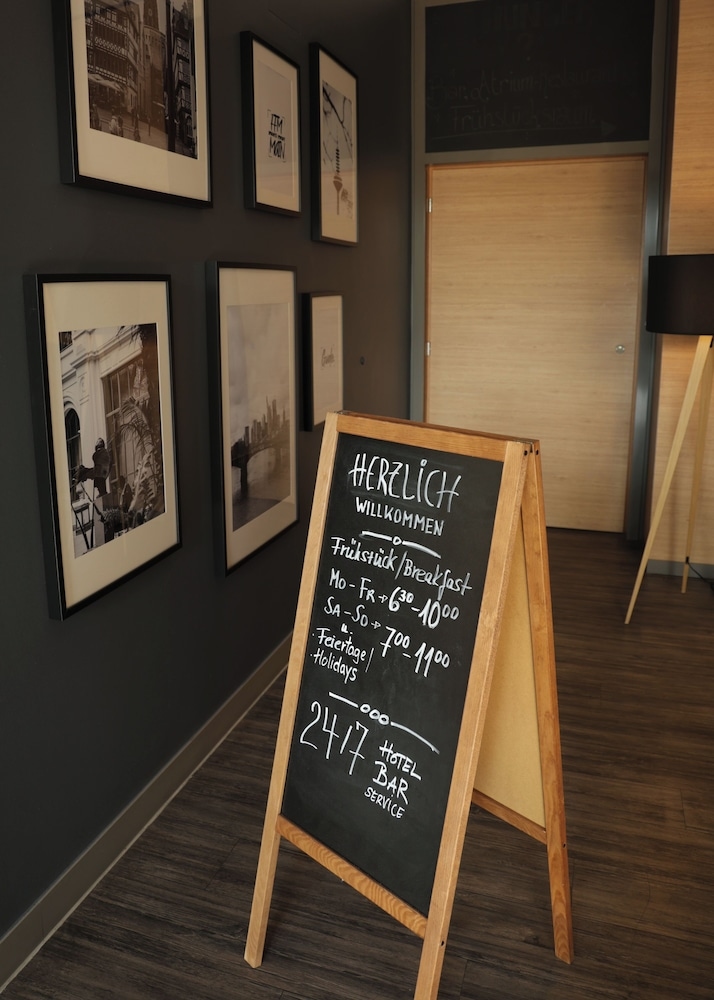 FFM
MAIN
HERZLICH
WILLKOMMEN
Frühstück/Breakfast
Mo-Fr → 6³⁰-10⁰⁰
Sa-So → 7⁰⁰-11⁰⁰
u.
Feiertage/
Holidays
24/7 HOTEL
BAR
SERVICE